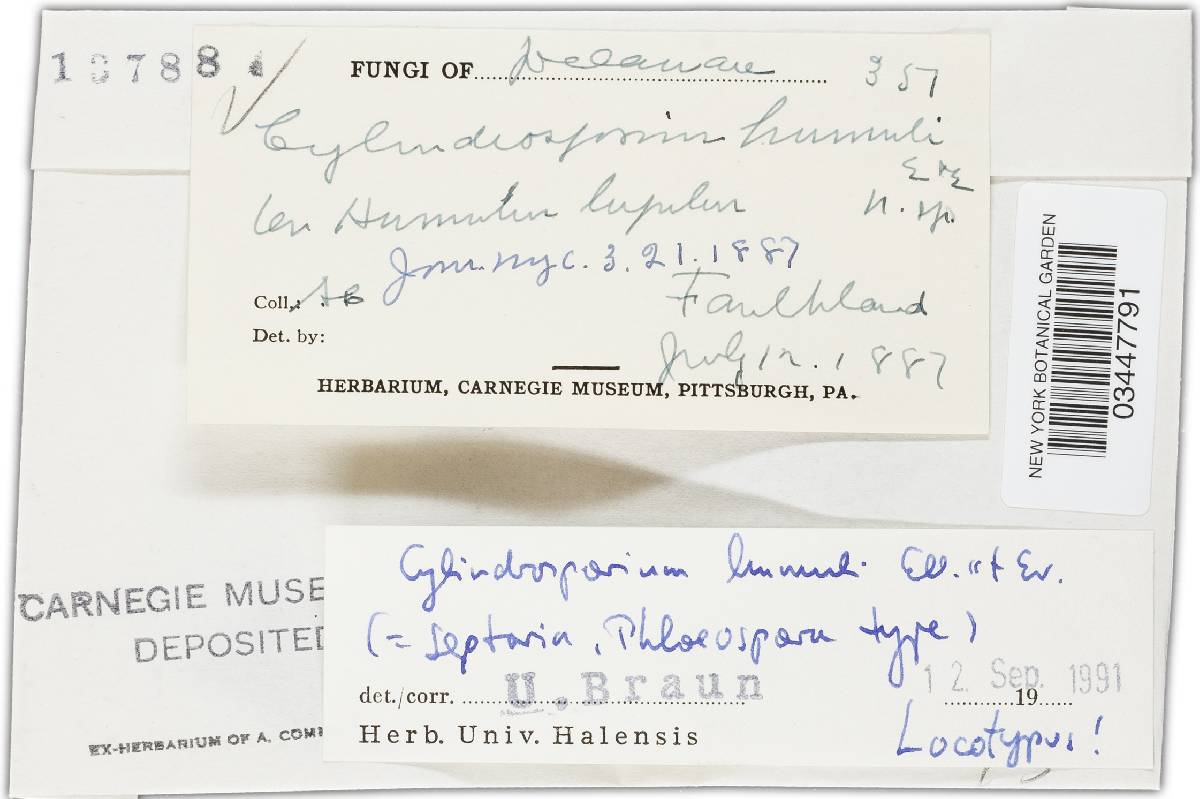 FUNGI OF Delaware 357
Cylindrosporium humuli
E & E
on Humulus lupulus n. sp.
Jour. Myc. 3. 21. 1887
Coll.: Faulkland
Det. by: July 12. 1887
HERBARIUM, CARNEGIE MUSEUM, PITTSBURGH, PA.
NEW YORK BOTANICAL GARDEN
03447791
CARNEGIE MUSE
DEPOSITED
EX-HERBARIUM OF A. COM
Cylindrosporium humuli Ell. et Ev.
(= Septoria, Phloeospora type)
det./corr. U. Braun 12. Sep. 1991
19
Herb. Univ. Halensis Locotypus!